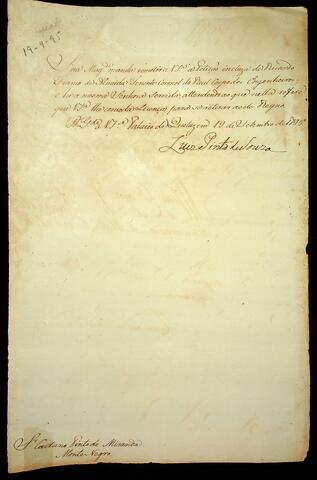 19-9-95
Sua Mag.e manda remetter a V.S.a a Petição incluza de Ricardo
Franco de Almeida Tenente Coronel do Real Corpo de Engenheiros
e he a mesma Senhora Servida, attendendo ao que nella refere
que V.S.a lhe conceda Licença para se retirar a este Reyno
D.s G.e a V.S.a Palacio de Queluz em 19 de Setembro de 1795
Luiz Pinto de Souza
S.r Caetano Pinto de Miranda
Monte Negro